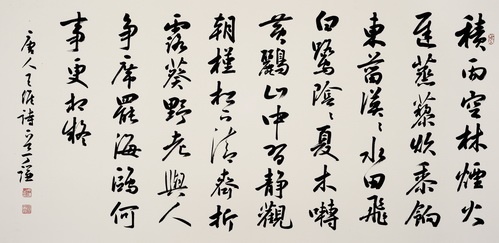 積雨空林煙火
遲蒸藜炊黍餉
東菑漠〻水田飛
白鷺陰〻夏木囀
黄鸝山中習靜觀
朝槿松下清齋折
露葵野老與人
争席罷海鷗何
事更相疑
唐人王維詩丁謙